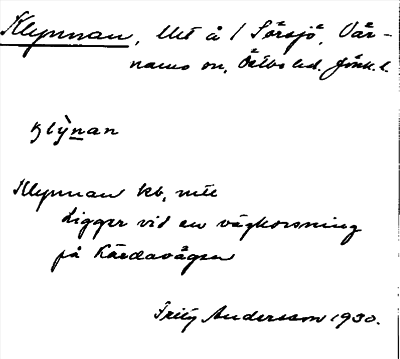 Klynnan, llt å / Sörsjö, Vär-
namo sn, Östbo hd. Jönk. l.
klỳnan
Klynnan kb, mtl
Ligger vid en vägkorsning
på Kärdavägen
Fritz Andersson 1930.